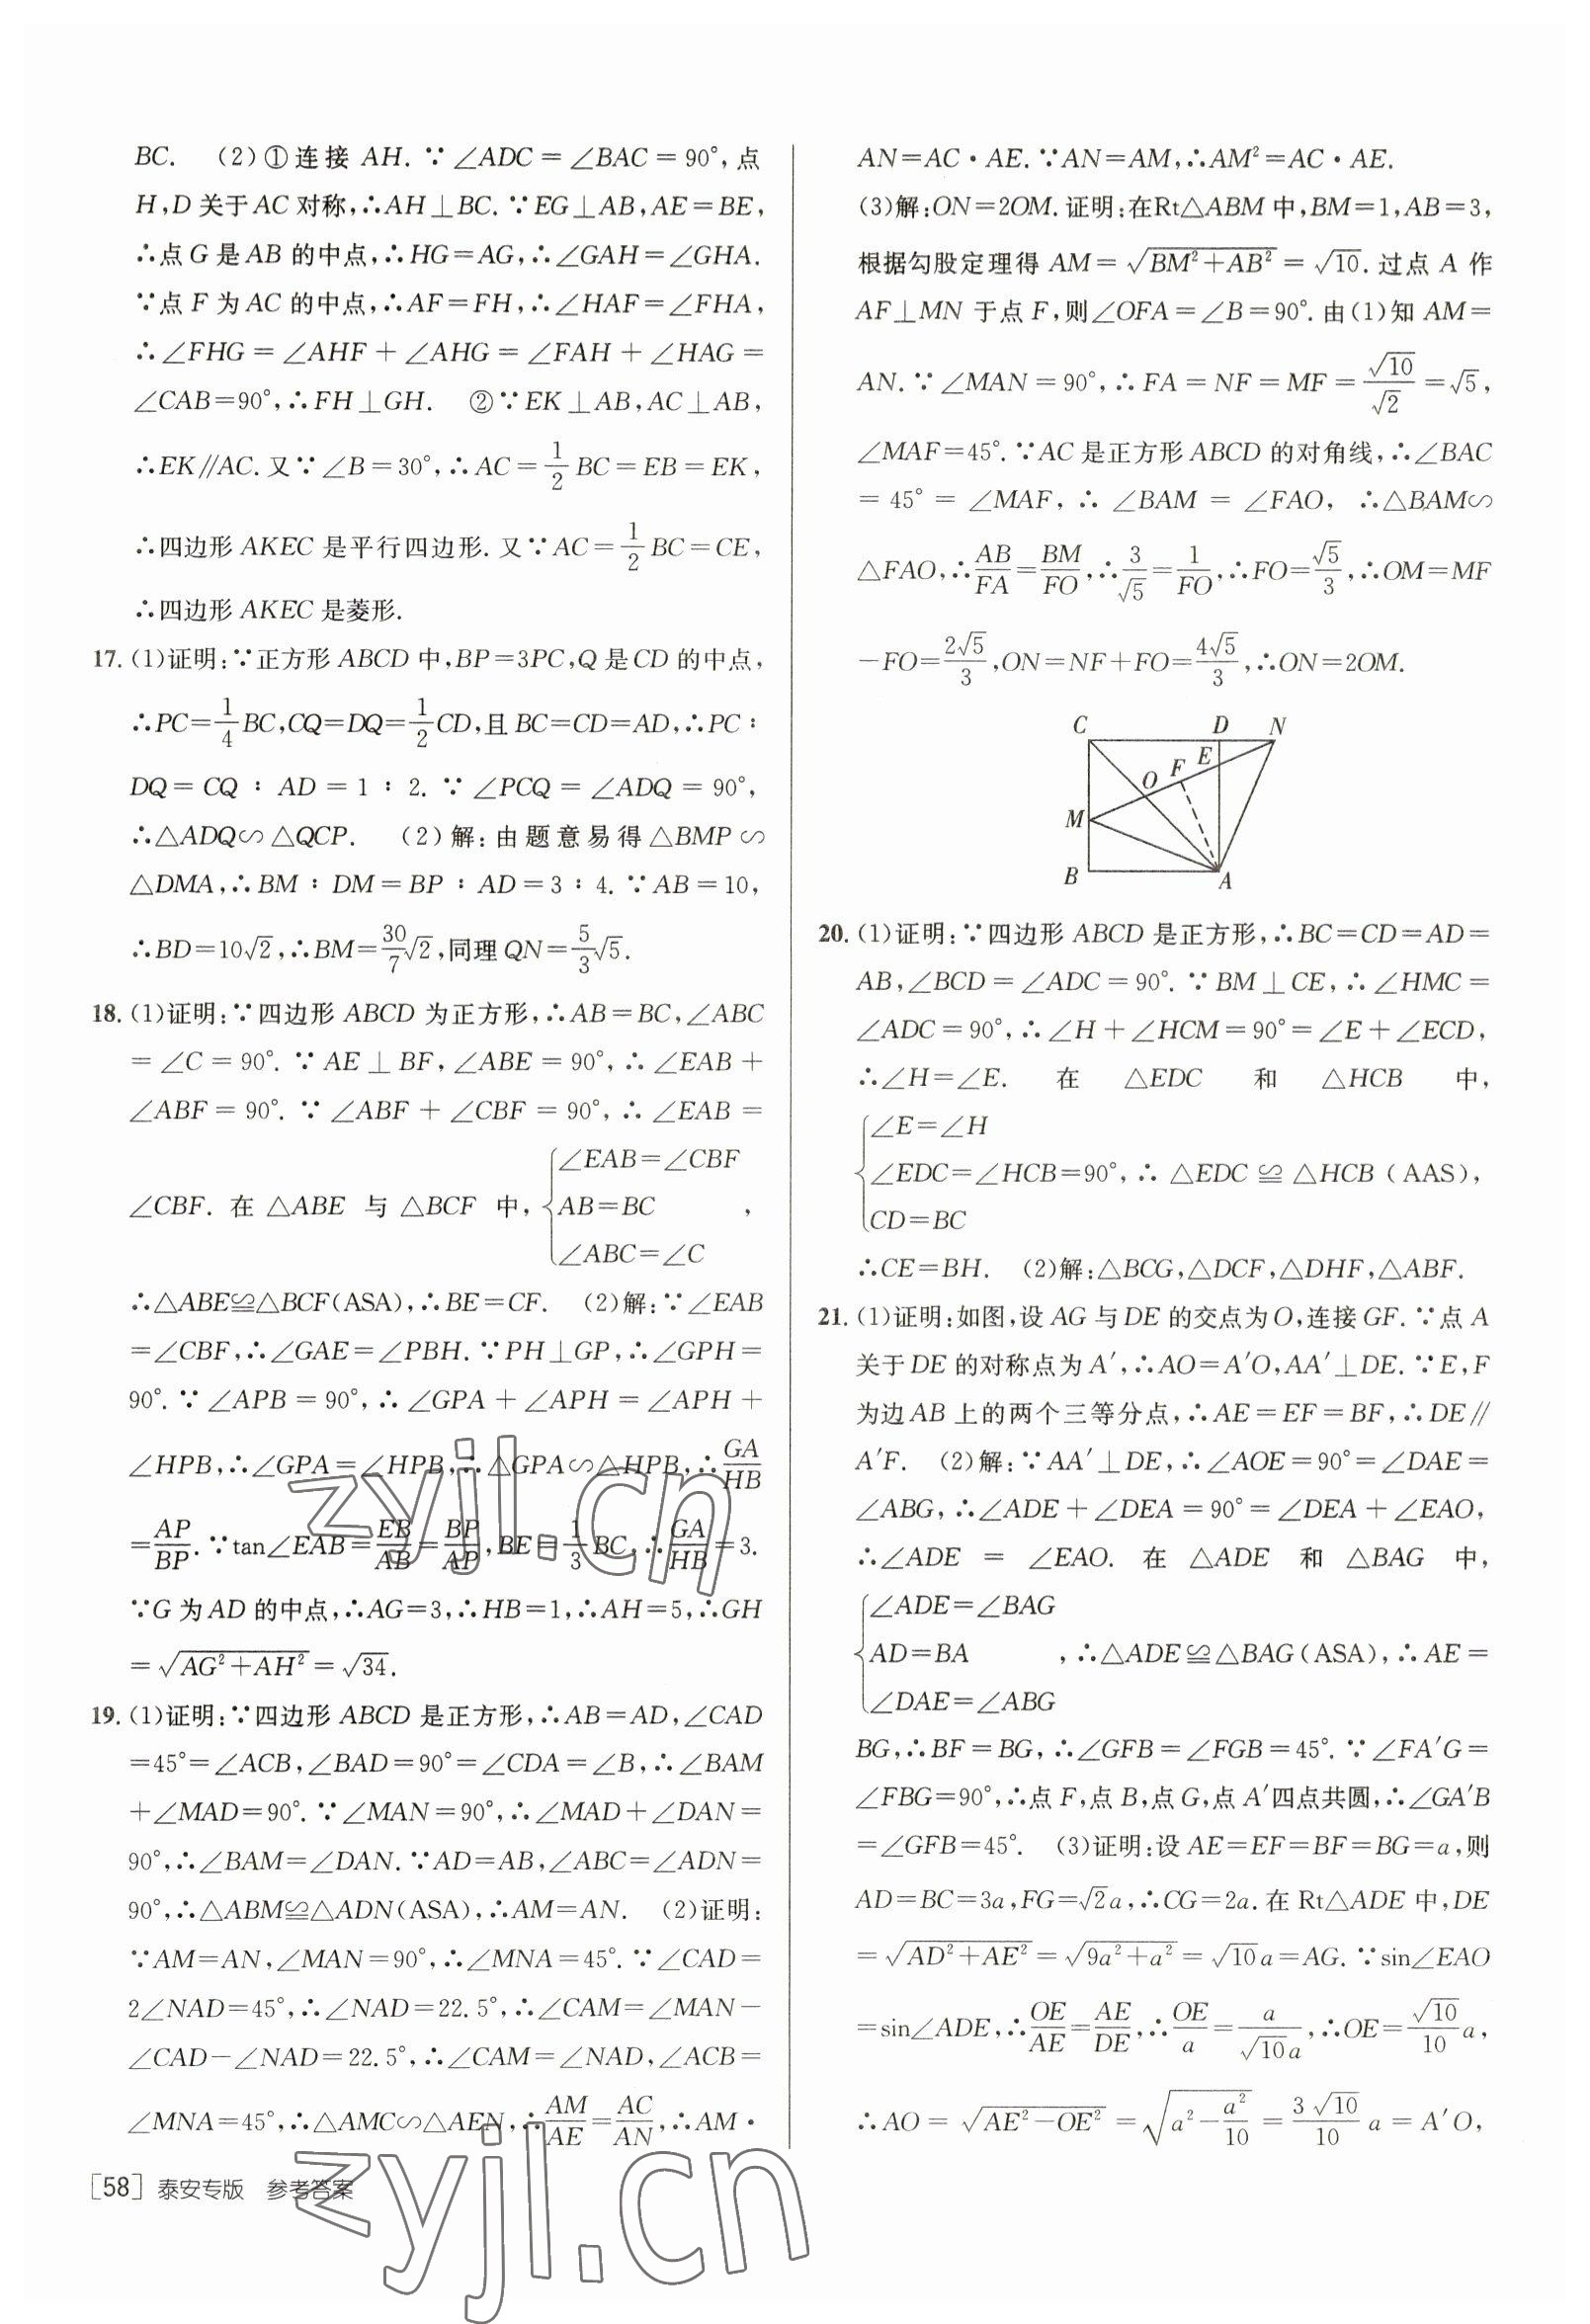 BC. (2)①连接 AH. ∵∠ADC=∠BAC=90°,点
H,D关于AC对称,∴AH⊥BC. ∵EG⊥AB,AE=BE,
∴点G是AB的中点,∴HG=AG,∴∠GAH=∠GHA.
∵点F为AC的中点,∴AF=FH,∴∠HAF=∠FHA,
∴∠FHG=∠AHF+∠AHG=∠FAH+∠HAG=
∠CAB=90°,∴FH⊥GH. ②∵EK⊥AB,AC⊥AB,
∴EK∥AC.又∵∠B=30°,∴AC=1/2 BC=EB=EK,
∴四边形AKEC是平行四边形.又∵AC=1/2 BC=CE,
∴四边形AKEC是菱形.
17. (1)证明:∵正方形ABCD中,BP=3PC,Q是CD的中点,
∴PC=1/4 BC,CQ=DQ=1/2 CD,且BC=CD=AD,∴PC∶
DQ=CQ∶AD=1∶2. ∵∠PCQ=∠ADQ=90°,
∴△ADQ∽△QCP. (2)解:由题意易得△BMP∽
△DMA,∴BM∶DM=BP∶AD=3∶4. ∵AB=10,
∴BD=10√2,∴BM=30/7 √2,同理QN=5/3 √5.
18. (1)证明:∵四边形ABCD为正方形,∴AB=BC,∠ABC
=∠C=90°. ∵AE⊥BF,∠ABE=90°,∴∠EAB+
∠ABF=90°. ∵∠ABF+∠CBF=90°,∴∠EAB=
∠CBF. 在△ABE与△BCF中, {∠EAB=∠CBF
AB=BC ,
∠ABC=∠C
∴△ABE≌△BCF(ASA),∴BE=CF. (2)解:∵∠EAB
=∠CBF,∴∠GAE=∠PBH. ∵PH⊥GP,∴∠GPH=
90°. ∵∠APB=90°,∴∠GPA+∠APH=∠APH+
∠HPB,∴∠GPA=∠HPB,∴△GPA∽△HPB,∴GA/HB
=AP/BP. ∵tan∠EAB=EB/AB=BP/AP,BE=1/3 BC,∴GA/HB=3.
∵G为AD的中点,∴AG=3,∴HB=1,∴AH=5,∴GH
=√(AG²+AH²)=√34.
19. (1)证明:∵四边形ABCD是正方形,∴AB=AD,∠CAD
=45°=∠ACB,∠BAD=90°=∠CDA=∠B,∴∠BAM
+∠MAD=90°. ∵∠MAN=90°,∴∠MAD+∠DAN=
90°,∴∠BAM=∠DAN. ∵AD=AB,∠ABC=∠ADN=
90°,∴△ABM≌△ADN(ASA),∴AM=AN. (2)证明:
∵AM=AN,∠MAN=90°,∴∠MNA=45°. ∵∠CAD=
2∠NAD=45°,∴∠NAD=22.5°,∴∠CAM=∠MAN−
∠CAD−∠NAD=22.5°,∴∠CAM=∠NAD,∠ACB=
∠MNA=45°,∴△AMC∽△AEN,∴AM/AE=AC/AN,∴AM·
AN=AC·AE. ∵AN=AM,∴AM²=AC·AE.
(3)解:ON=2OM.证明:在Rt△ABM中,BM=1,AB=3,
根据勾股定理得AM=√(BM²+AB²)=√10.过点A作
AF⊥MN于点F,则∠OFA=∠B=90°.由(1)知AM=
AN. ∵∠MAN=90°,∴FA=NF=MF=√10/√2=√5,
∠MAF=45°. ∵AC是正方形ABCD的对角线,∴∠BAC
=45°=∠MAF,∴∠BAM=∠FAO, ∴△BAM∽
△FAO,∴AB/FA=BM/FO,∴3/√5=1/FO,∴FO=√5/3,∴OM=MF
−FO=2√5/3,ON=NF+FO=4√5/3,∴ON=2OM.
C D N
E
F
O
M
B A
20. (1)证明:∵四边形ABCD是正方形,∴BC=CD=AD=
AB,∠BCD=∠ADC=90°. ∵BM⊥CE,∴∠HMC=
∠ADC=90°,∴∠H+∠HCM=90°=∠E+∠ECD,
∴∠H=∠E. 在 △EDC 和 △HCB 中,
{∠E=∠H
∠EDC=∠HCB=90°,∴△EDC≌△HCB(AAS),
CD=BC
∴CE=BH. (2)解:△BCG,△DCF,△DHF,△ABF.
21. (1)证明:如图,设AG与DE的交点为O,连接GF. ∵点A
关于DE的对称点为A′,∴AO=A′O,AA′⊥DE. ∵E,F
为边AB上的两个三等分点,∴AE=EF=BF,∴DE∥
A′F. (2)解:∵AA′⊥DE,∴∠AOE=90°=∠DAE=
∠ABG,∴∠ADE+∠DEA=90°=∠DEA+∠EAO,
∴∠ADE=∠EAO. 在 △ADE 和 △BAG 中,
{∠ADE=∠BAG
AD=BA ,∴△ADE≌△BAG(ASA),∴AE=
∠DAE=∠ABG
BG,∴BF=BG,∴∠GFB=∠FGB=45°. ∵∠FA′G=
∠FBG=90°,∴点F,点B,点G,点A′四点共圆,∴∠GA′B
=∠GFB=45°. (3)证明:设AE=EF=BF=BG=a,则
AD=BC=3a,FG=√2a,∴CG=2a.在Rt△ADE中,DE
=√(AD²+AE²)=√(9a²+a²)=√10a=AG. ∵sin∠EAO
=sin∠ADE,∴OE/AE=AE/DE,∴OE/a=a/(√10a),∴OE=√10/10 a,
∴AO=√(AE²−OE²)=√(a²−a²/10)=3√10/10 a=A′O,
[58] 泰安专版 参考答案
zyjl.cn
zyjl.cn